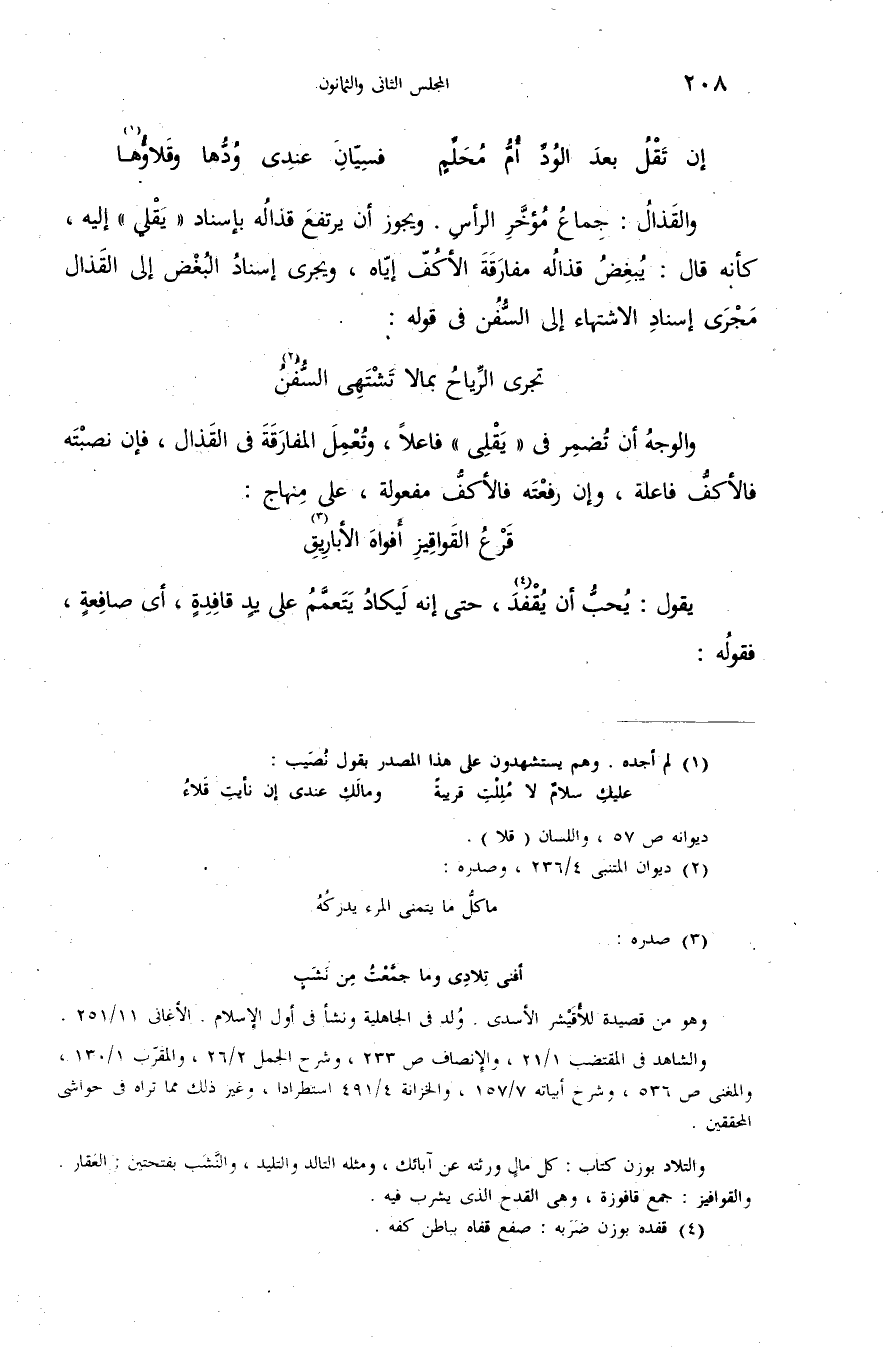 ٢٠٨ المجلس الثانى والثمانون
إن تَقْلُ بعدَ الوُدِّ أُمُّ مُحَلِّمٍ فسِيّانِ عندِى وُدُّها وقَلاؤُها(١)
والقَذالُ : جِماعُ مُؤخَّرِ الرأسِ . ويجوز أن يرتفعَ قذالُه بإسناد « يَقْلِي » إليه ،
كأنه قال : يُبغِضُ قذالُه مفارَقَةَ الأكُفّ إيّاه ، ويجرى إسنادُ البُغْض إلى القَذال
مَجْرَى إسنادِ الاشتهاء إلى السُّفُن فى قوله :
تجرى الرِّياحُ بمالا تَشْتَهِى السُّفُنُ(٢)
والوجهُ أن تُضمِر فى « يَقْلِى » فاعلاً ، وتُعْمِلَ المفارَقَةَ فى القَذال ، فإن نصبْتَه
فالأكفُّ فاعلة ، وإن رفعْتَه فالأكفُّ مفعولة ، على مِنهاج :
قَرْعُ القَواقِيزِ أَفواهَ الأبارِيقِ(٣)
يقول : يُحبُّ أن يُقْفدَ(٤) ، حتى إنه لَيكادُ يَتَعمَّمُ على يدٍ قافِدِةٍ ، أى صافِعةٍ ،
فقولُه :
(١) لم أجده . وهم يستشهدون على هذا المصدر بقول نُصَيب :
عليكِ سلامٌ لا مُلِلْتِ قريبةً ومالَكِ عندى إن نأيتِ قَلاءُ
ديوانه ص ٥٧ ، واللسان ( قلا ) .
(٢) ديوان المتنبى ٢٣٦/٤ ، وصدره :
ماكلُّ ما يتمنى المرء يدركُهُ
(٣) صدره :
أفنى تِلادِى وما جمَّعْتُ مِن نَشَبٍ
وهو من قصيدة للأُقَيْشر الأسدى . وُلد فى الجاهلية ونشأ فى أول الإسلام . الأغانى ٢٥١/١١ .
والشاهد فى المقتضب ٢١/١ ، والإنصاف ص ٢٣٣ ، وشرح الجمل ٢٦/٢ ، والمقرّب ١٣٠/١ ،
والمغنى ص ٥٣٦ ، وشرح أبياته ١٥٧/٧ ، والخزانة ٤٩١/٤ استطرادا ، وغير ذلك مما تراه فى حواشى
المحققين .
والتلاد بوزن كتاب : كل مالٍ ورثته عن آبائك ، ومثله التالد والتليد ، والنَّشَب بفتحتين : العَقار .
والقوافيز : جمع قافوزة ، وهى القدح الذى يشرب فيه .
(٤) قفده بوزن ضَرَبه : صفع قفاه بباطن كفه .